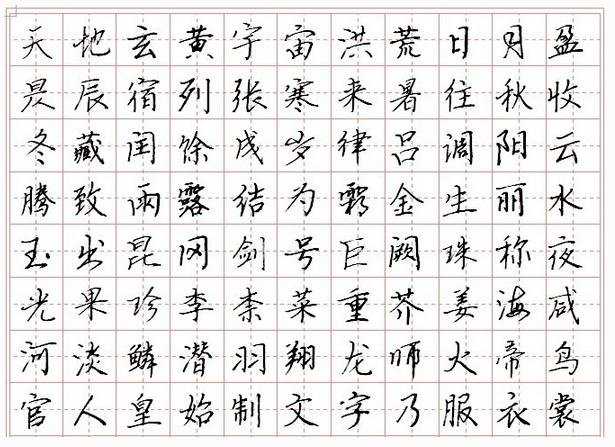 天地玄黄宇宙洪荒日月盈
昃辰宿列张寒来暑往秋收
冬藏闰馀成岁律吕调阳云
腾致雨露结为霜金生丽水
玉出昆冈剑号巨阙珠称夜
光果珍李柰菜重芥姜海咸
河淡鳞潜羽翔龙师火帝鸟
官人皇始制文字乃服衣裳